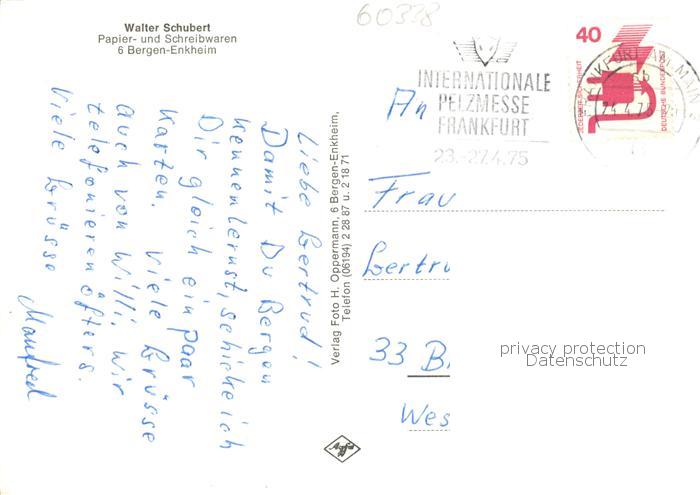 60338
Walter Schubert
Papier- und Schreibwaren
6 Bergen-Enkheim
Liebe Gertrud!
Damit Du Bergen
kennenlernst, schicke ich
Dir gleich ein paar
Karten. Viele Grüsse
auch von Willi. Wir
telefonieren öfters.
Viele Grüsse
Manfred
Verlag Foto H. Oppermann, 6 Bergen-Enkheim,
Telefon (06194) 2 28 87 u. 2 18 71
Agfa
INTERNATIONALE
PELZMESSE
FRANKFURT
23.-27.4.75
40
JEDERZEIT SICHERHEIT
DEUTSCHE BUNDESPOST
FRANKFURT AM MAIN
An
Frau
Gertru
33 B.
Wes
privacy protection
Datenschutz